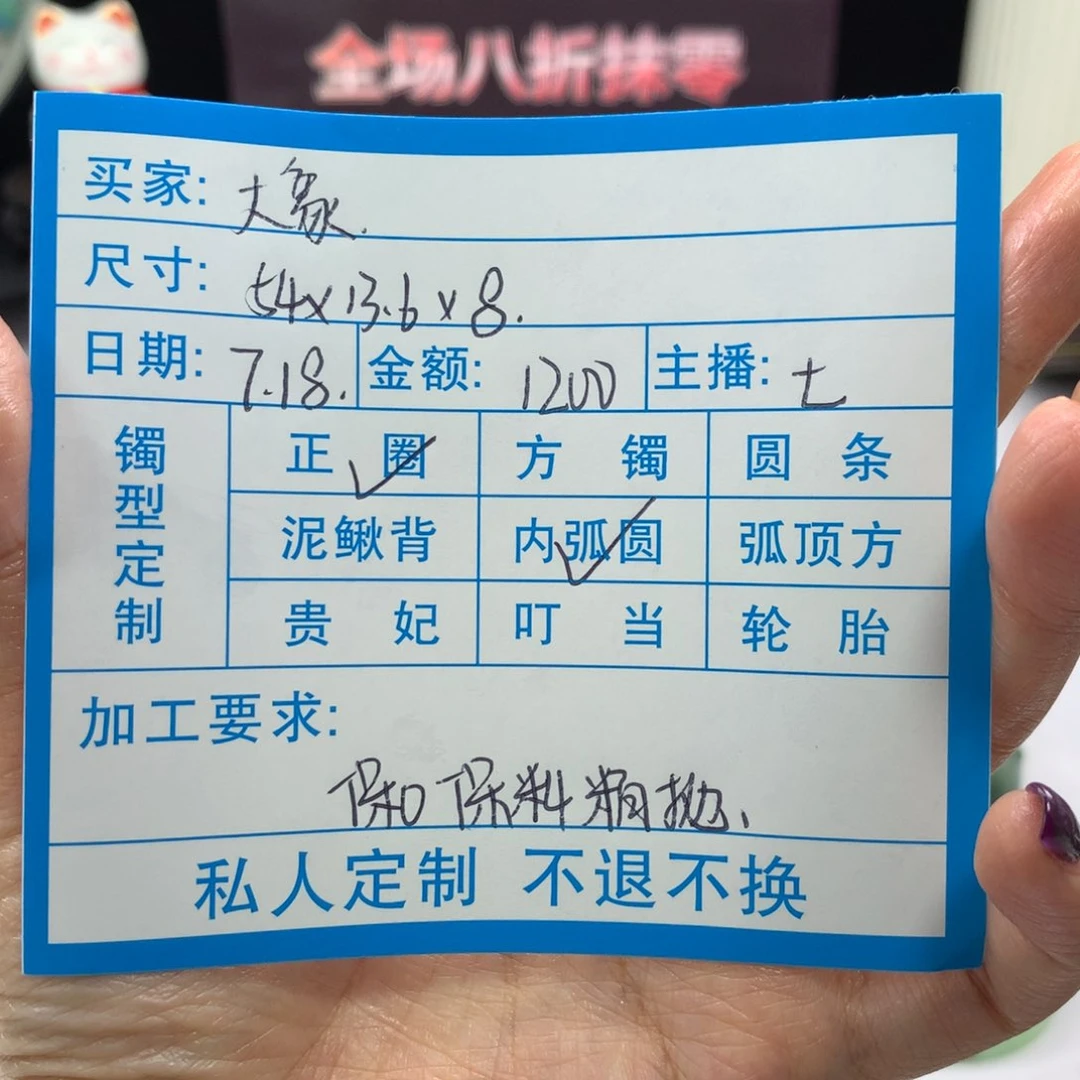 全场八折抹零
买家: 大象.
尺寸: 54x13.6x8.
日期: 7.18. 金额: 1200 主播: 七
镯型定制
正圈 方镯 圆条
泥鳅背 内弧圆 弧顶方
贵妃 叮当 轮胎
加工要求:
保料精抛、
私人定制 不退不换